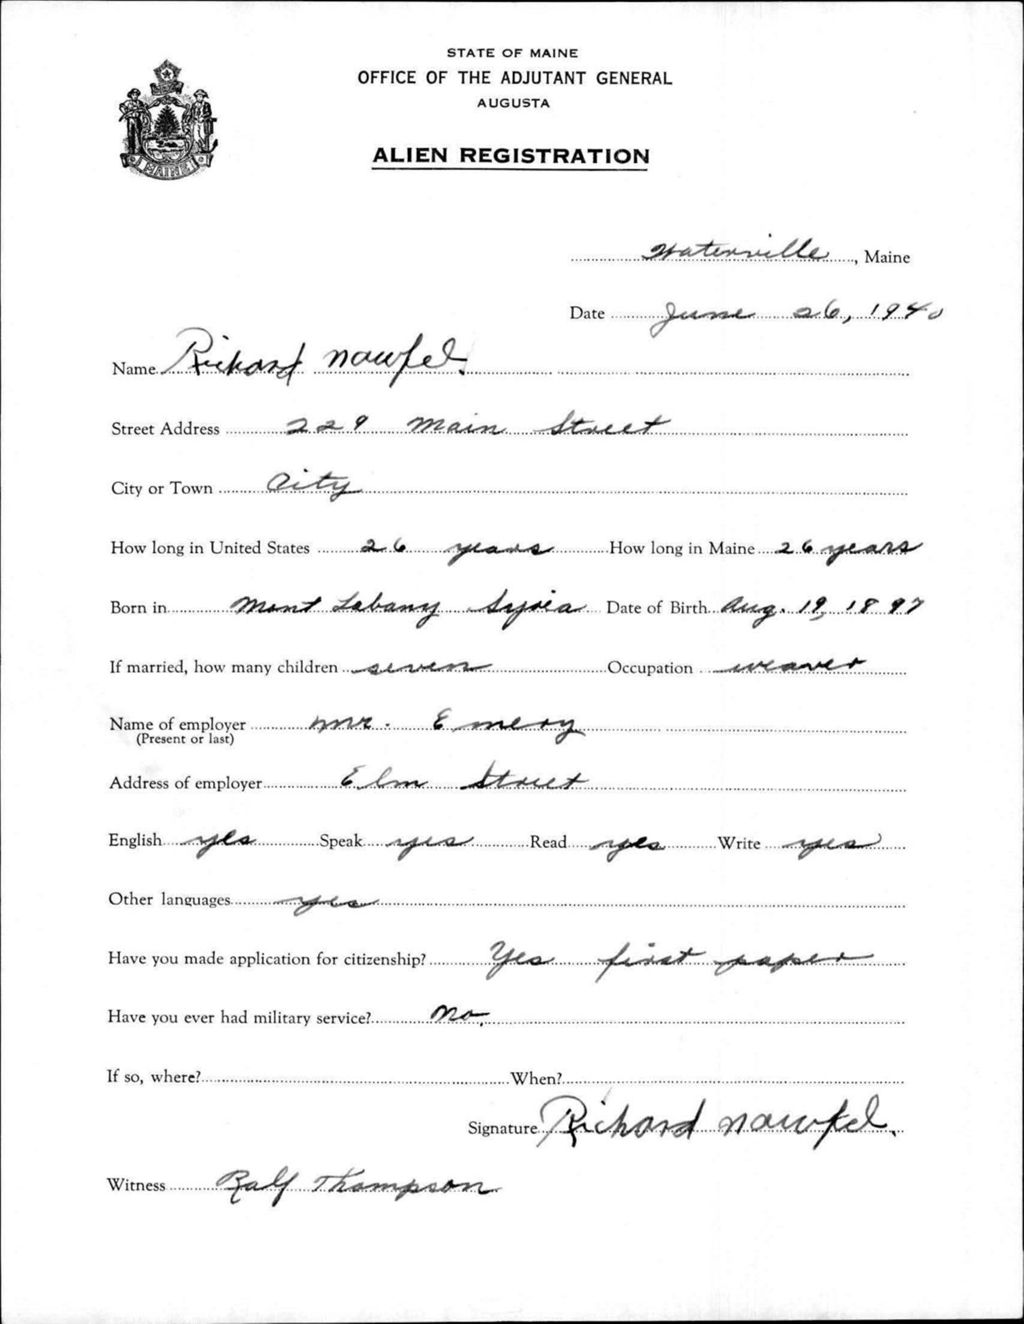 STATE OF MAINE
OFFICE OF THE ADJUTANT GENERAL
AUGUSTA
ALIEN REGISTRATION
MAINE
Waterville, Maine
Date June 26, 1940
Name Richard Nawfel.
Street Address 229 Main Street
City or Town City
How long in United States 26 years How long in Maine 26 years
Born in Mont Labany Syria Date of Birth Aug. 19, 1897
If married, how many children seven Occupation weaver
Name of employer Mr. Emery
(Present or last)
Address of employer Elm Street
English yes Speak yes Read yes Write yes
Other languages yes
Have you made application for citizenship? Yes first paper
Have you ever had military service? No.
If so, where? When?
Signature Richard Nawfel.
Witness Ralf Thompson